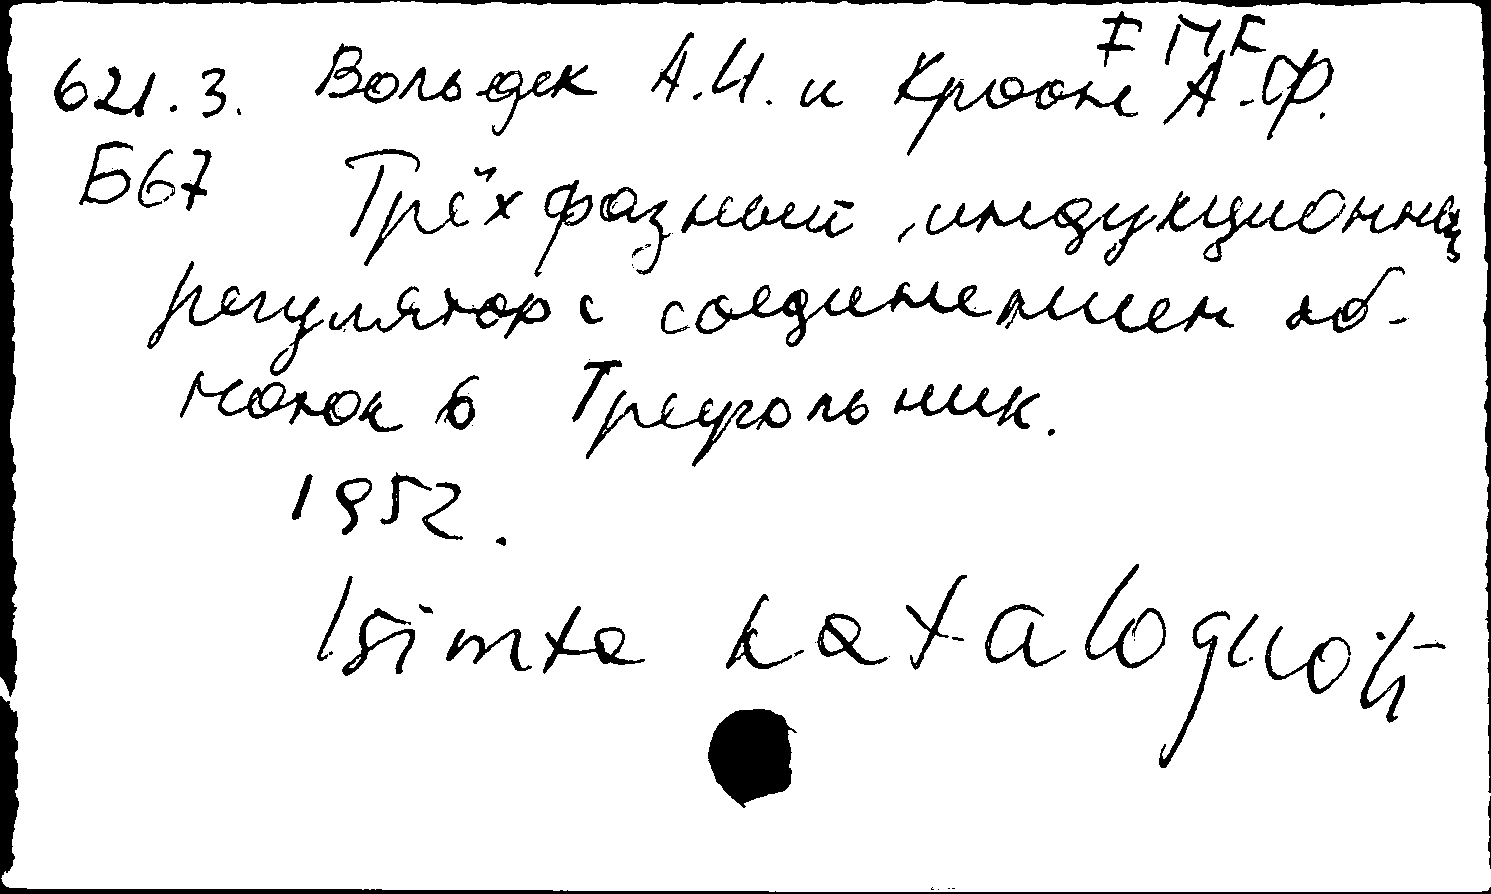 FMF
621.3. Вольдек А.И. и Кроон А.Ф.
Б67 Трёхфазный индукционный
регулятор с соединением об-
моток в Треугольник.
1952.
Išimta kataloguoti